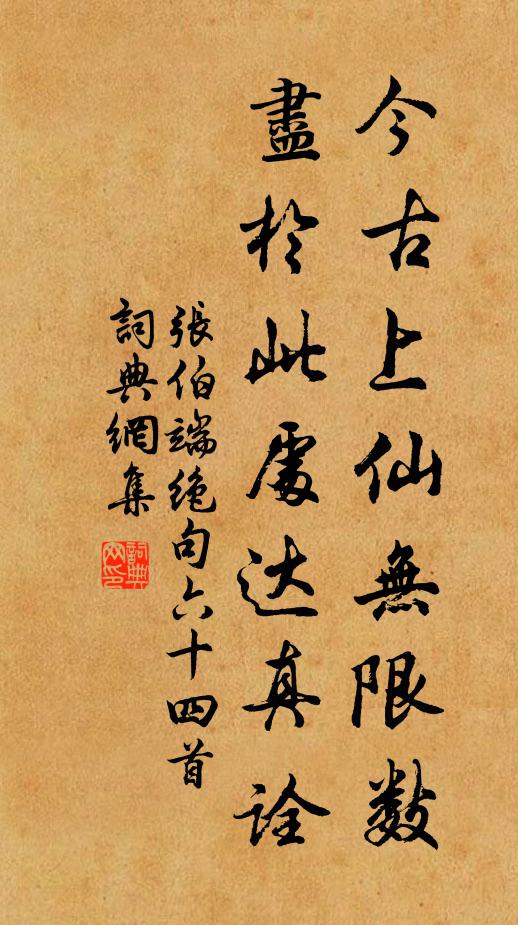 今古上仙無限数
盡於此處达真詮
張伯端绝句六十四首
詞典網集
詞典网印